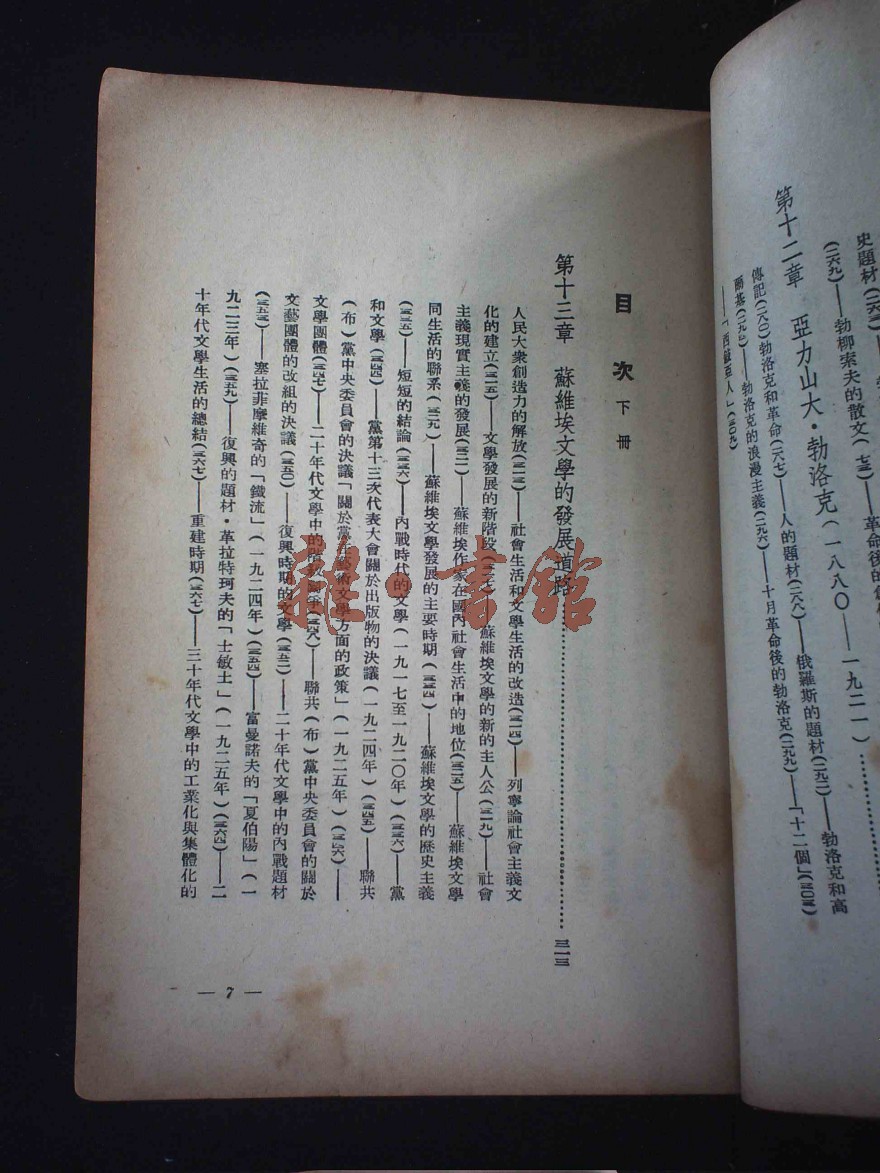 史題材(二六六)
(二六九)——勃柳索夫的散文(
革命後的
第十二章　亞力山大·勃洛克(一八八〇——一九二一)…………
傳記(二八〇)勃洛克和革命(二八七)——人的題材(二八八)——俄羅斯的題材(二九二)——勃洛克和高
爾基(二九三)——勃洛克的浪漫主義(二九六)——十月革命後的勃洛克(二九九)——「十二個」(三〇三)
——「西徐亞人」(三〇九)
目次下冊
第十三章　蘇維埃文學的發展道路…………三一三
人民大衆創造力的解放(三一三)——社會生活和文學生活的改造(三一四)——列寧論社會主義文
化的建立(三一五)——文學發展的新階段——蘇維埃文學的新的主人公(三一九)——社會
主義現實主義的發展(三二一)——蘇維埃作家在國內社會生活中的地位(三二五)——蘇維埃文學
同生活的聯系(三二九)——蘇維埃文學發展的主要時期(三三四)——蘇維埃文學的歷史主義
(三三五)——短短的結論(三三六)——內戰時代的文學(一九一七至一九二〇年)(三三六)——黨
和文學(三四四)——黨第十三次代表大會關於出版物的決議(一九二四年)(三四五)——聯共
(布)黨中央委員會的決議「關於黨在藝術文學方面的政策」(一九二五年)(三四六)——
文學團體(三四七)——二十年代文學中的階級鬬爭(三四八)——聯共(布)黨中央委員會的關於
文藝團體的改組的決議(三五〇)——復興時期的文學(三五二)——二十年代文學中的內戰題材
(三五三)——塞拉菲摩維奇的「鐵流」(一九二四年)(三五四)——富曼諾夫的「夏伯陽」(一
九二三年)(三五九)——復興的題材·革拉特珂夫的「士敏土」(一九二五年)(三六四)——二
十年代文學生活的總結(三六七)——重建時期(三六七)——三十年代文學中的工業化與集體化的
— 7 —
雜·書館